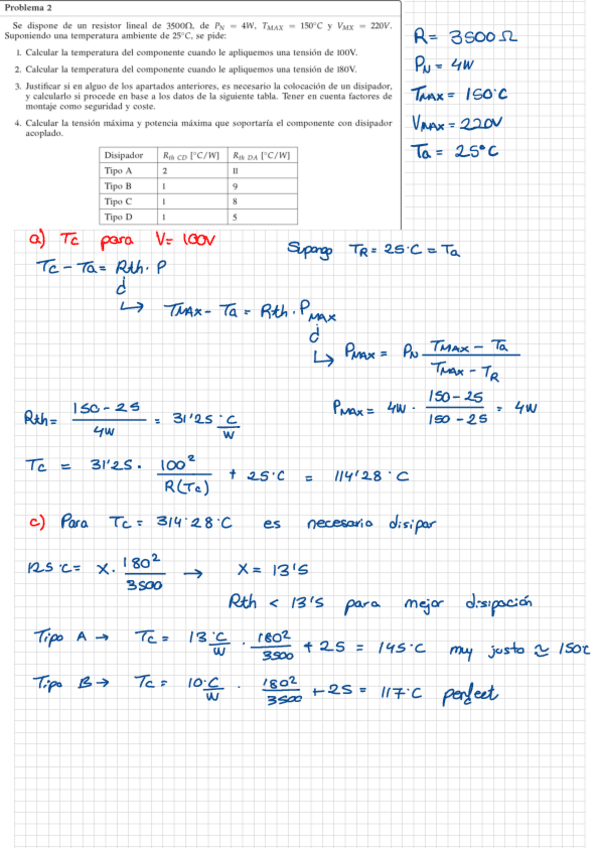 Problema 2
Se dispone de un resistor lineal de 3500Ω, de P_N = 4W, T_MAX = 150°C y V_MX = 220V.
Suponiendo una temperatura ambiente de 25°C, se pide:
1. Calcular la temperatura del componente cuando le apliquemos una tensión de 100V.
2. Calcular la temperatura del componente cuando le apliquemos una tensión de 180V.
3. Justificar si en alguo de los apartados anteriores, es necesario la colocación de un disipador,
y calcularlo si procede en base a los datos de la siguiente tabla. Tener en cuenta factores de
montaje como seguridad y coste.
4. Calcular la tensión máxima y potencia máxima que soportaría el componente con disipador
acoplado.
Disipador R_th CD [°C/W] R_th DA [°C/W]
Tipo A 2 11
Tipo B 1 9
Tipo C 1 8
Tipo D 1 5
R = 3500 Ω
P_N = 4W
T_MAX = 150°C
V_MAX = 220V
Ta = 25°C
a) Tc para V = 100V
Supongo T_R = 25°C = Ta
Tc - Ta = Rth · P
↳ T_MAX - Ta = Rth · P_MAX
↳ P_MAX = P_N (T_MAX - Ta)/(T_MAX - T_R)
P_MAX = 4W · (150-25)/(150-25) = 4W
Rth = (150-25)/4W = 31'25 °C/W
Tc = 31'25 · 100²/R(Tc) + 25°C = 114'28°C
c) Para Tc = 314'28°C es necesario disipar
125°C = X · 180²/3500 → X = 13'5
Rth < 13'5 para mejor disipación
Tipo A → Tc = 13 °C/W · 180²/3500 + 25 = 145°C muy justo ≃ 150°C
Tipo B → Tc = 10 °C/W · 180²/3500 + 25 = 117°C perfect